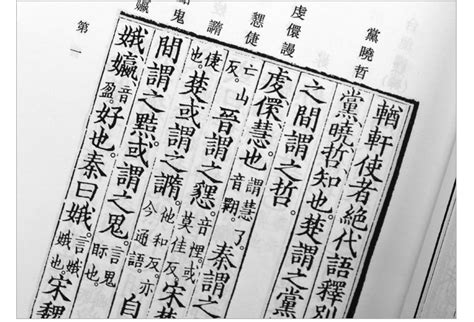 黨曉哲
虔儇謾
㦟倢
䜏鬼
第一
輶軒使者絕代語釋別
黨、曉、哲,知也。楚謂之黨
之間謂之哲。
虔、儇,慧也。謂慧了。音翾。秦謂
亡山晉謂之㦟。音悝或莫佳反。宋楚
倢也。楚或謂之䜏。他和反亦今通語。自
間謂之黠。或謂之鬼。言鬼眎也。
娥、㜲,音盈。好也。秦曰娥。言娥娥也。宋魏